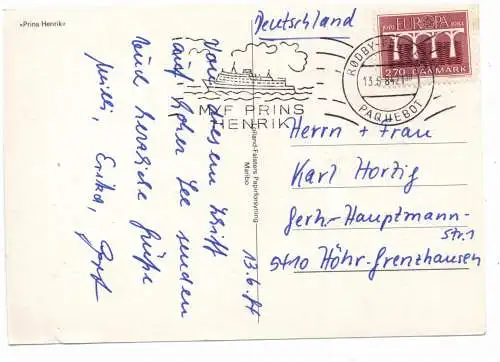 »Prins Henrik«
Deutschland
1959 EUROPA 1984
270 DANMARK
RØDBY
13.6.84
PAQUEBOT
M/F PRINS
HENRIK
Lolland-Falsters Papirforsyning
Maribo
13.6.84
Von diesem Schiff
auf hoher See senden
wir herzliche Grüße
Willi, Erika,
Herrn + Frau
Karl Hortig
Gerh.-Hauptmann-
Str. 1
5410 Höhr-Grenzhausen